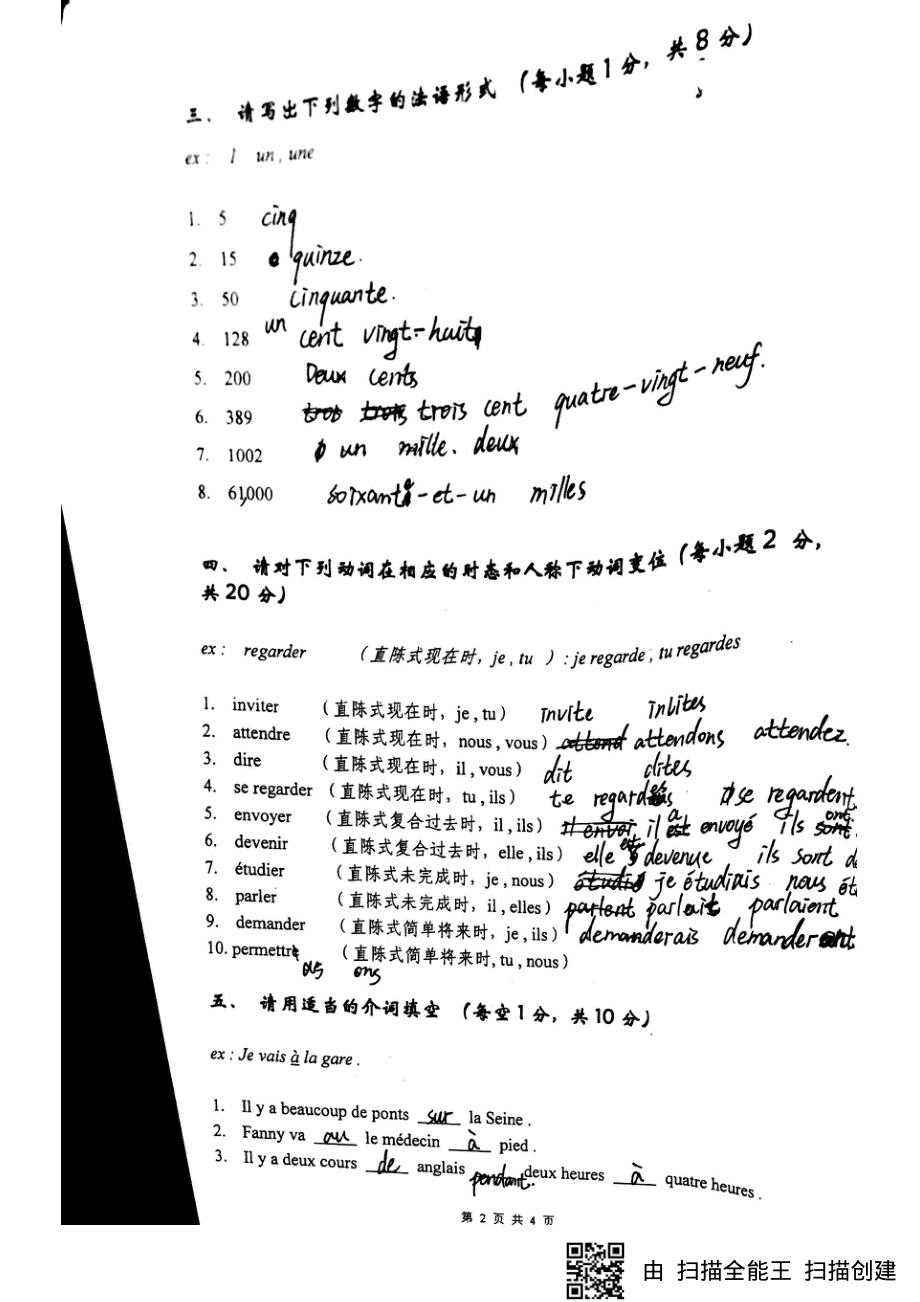 三、 请写出下列数字的法语形式 （每小题1分，共8分）
ex : 1 un , une
1. 5 cinq
2. 15 quinze.
3. 50 cinquante.
4. 128 un cent vingt-huit
5. 200 Deux cents
6. 389 trois cent quatre-vingt-neuf.
7. 1002 un mille. deux
8. 61,000 soixante-et-un milles
四、 请对下列动词在相应的时态和人称下动词变位（每小题2 分，
共20分）
ex : regarder （直陈式现在时，je , tu ）: je regarde , tu regardes
1. inviter （直陈式现在时，je , tu） invite invites
2. attendre （直陈式现在时，nous , vous） attend attendons attendez.
3. dire （直陈式现在时，il , vous） dit dites
4. se regarder （直陈式现在时，tu , ils） te regardes se regardent.
5. envoyer （直陈式复合过去时，il , ils） il envoi il est a envoyé ils sont ont
6. devenir （直陈式复合过去时，elle , ils） elle est devenue ils sont de
7. étudier （直陈式未完成时，je , nous） étudie je étudiais nous étu
8. parler （直陈式未完成时，il , elles） parlent parlait parlaient
9. demander （直陈式简单将来时，je , ils） demanderais demanderont
10. permettre （直陈式简单将来时, tu , nous） as ons
五、 请用适当的介词填空 （每空1分，共10分）
ex : Je vais à la gare .
1. Il y a beaucoup de ponts sur la Seine .
2. Fanny va au le médecin à pied .
3. Il y a deux cours de anglais pendant. deux heures à quatre heures .
第 2 页 共 4 页
由 扫描全能王 扫描创建